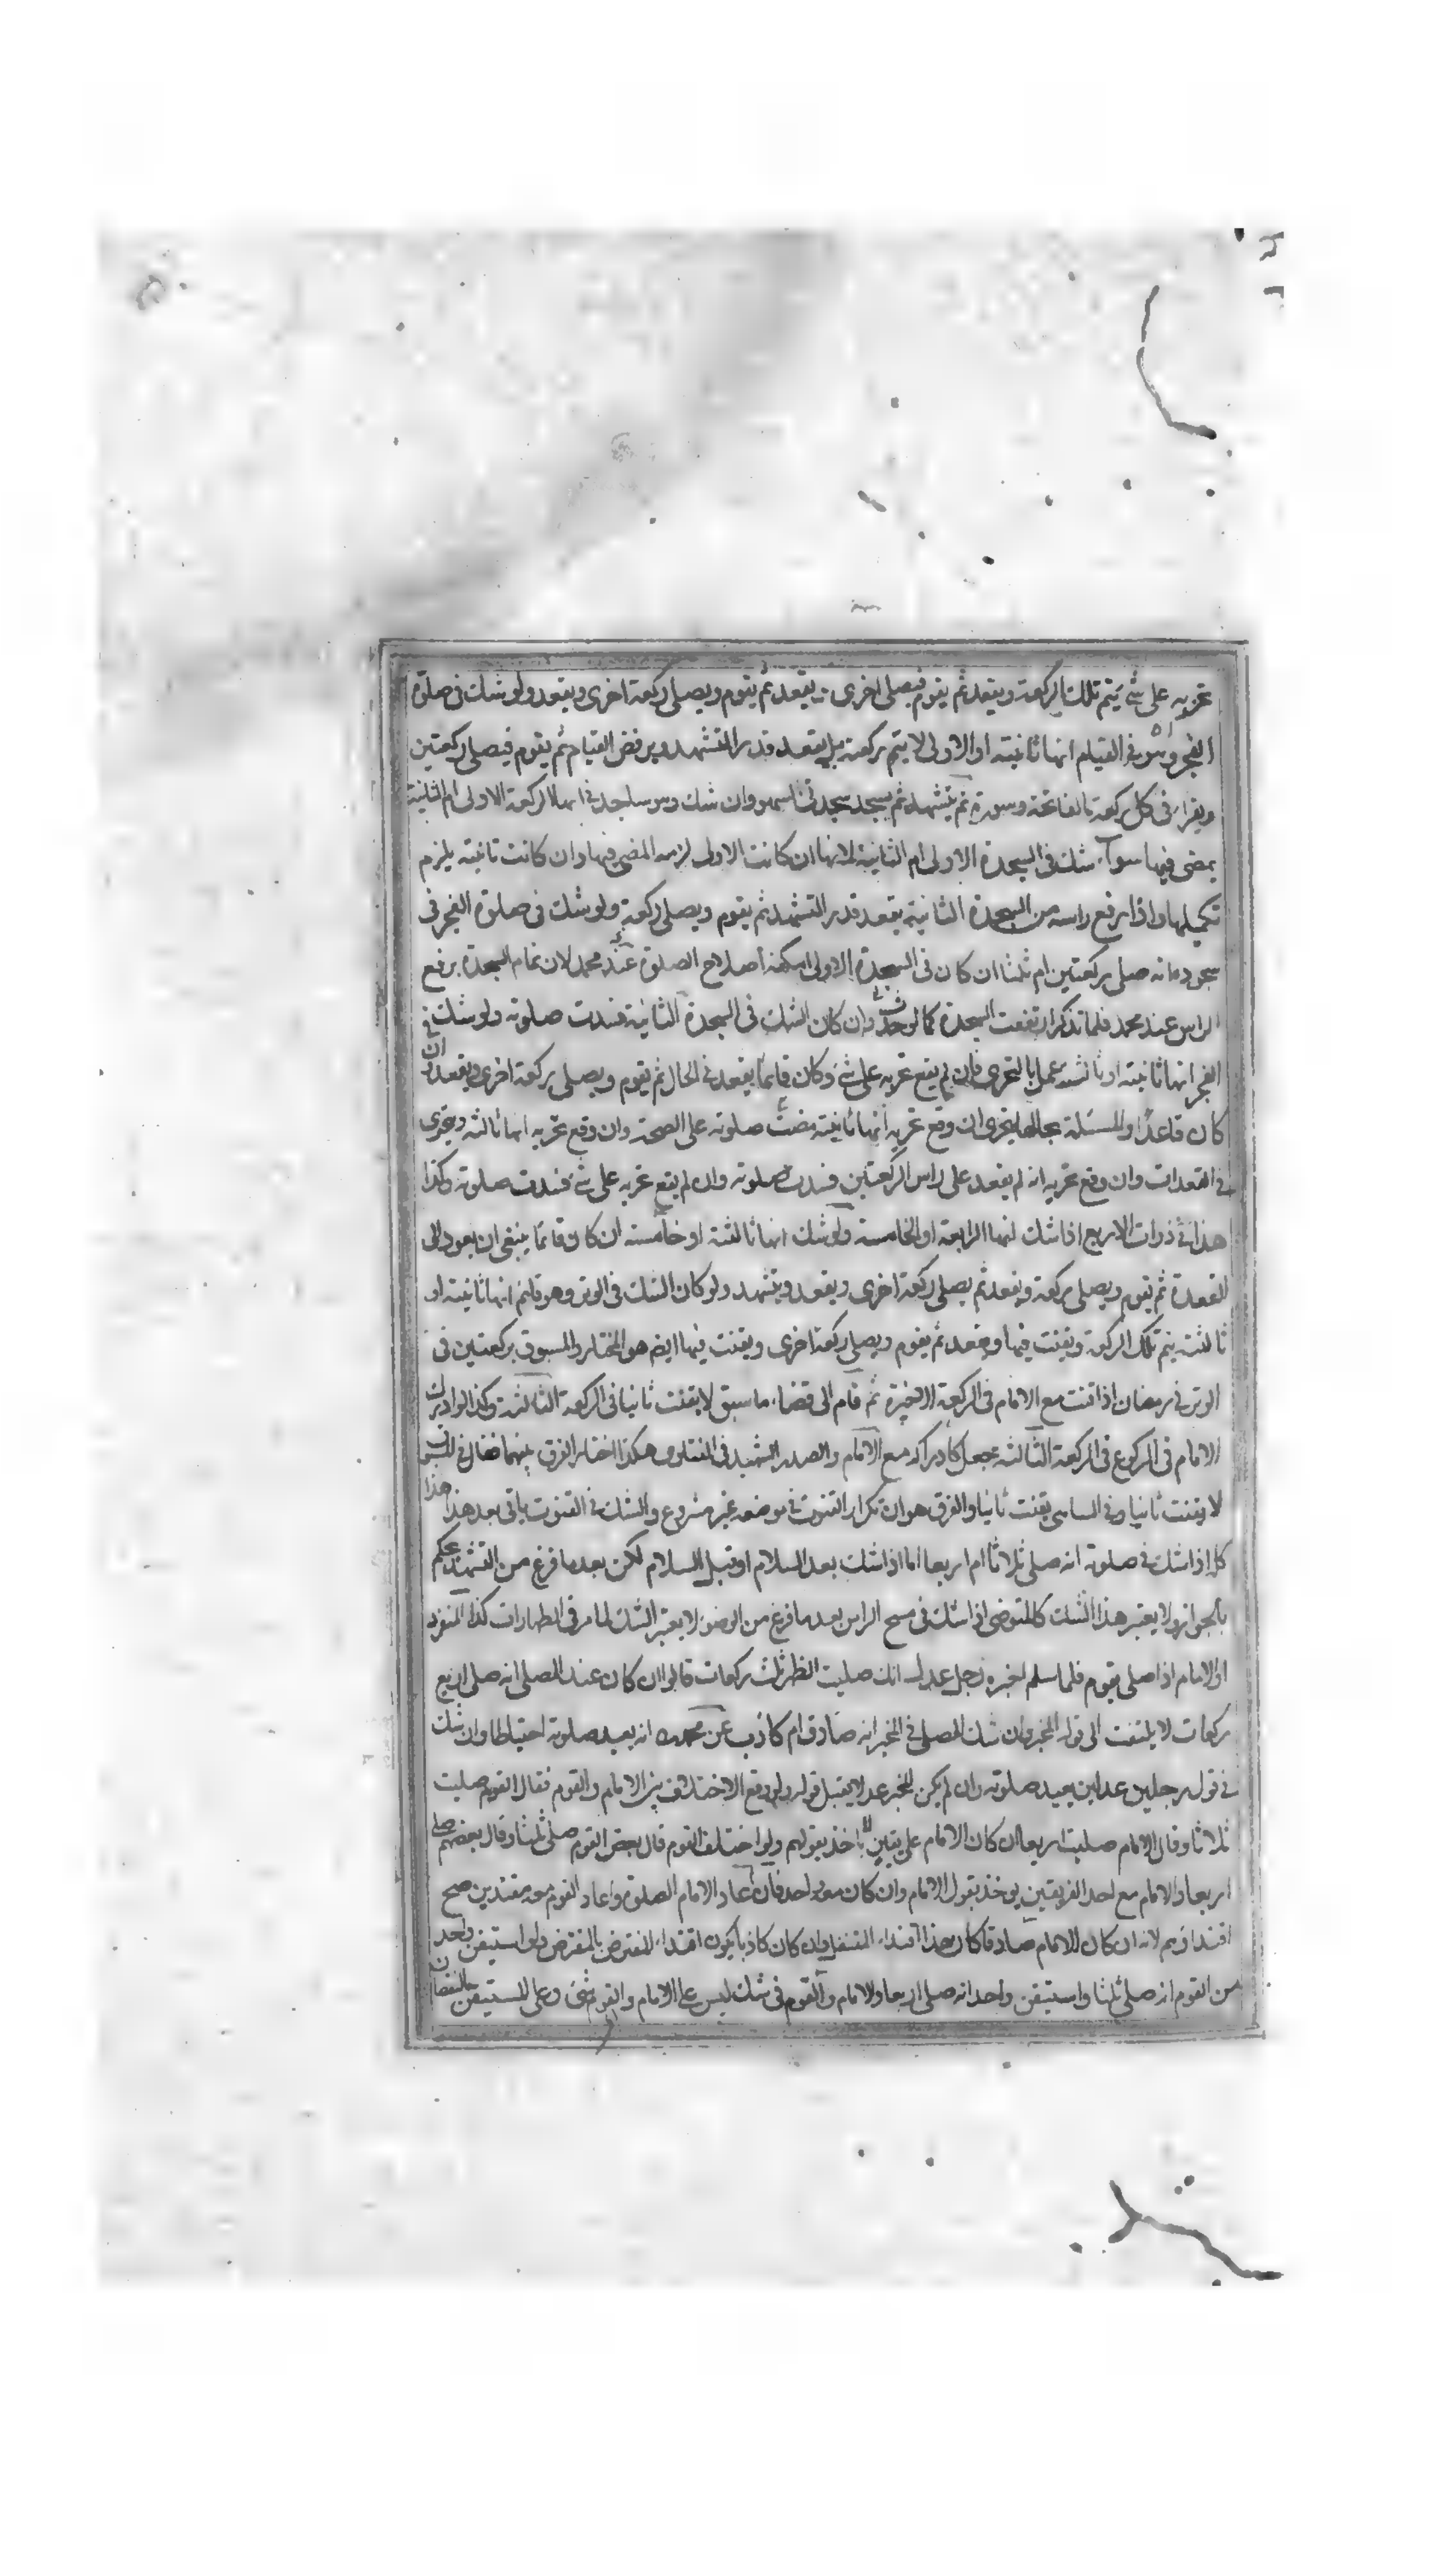 تحريه على شئ يتم تلك الركعة ويقعد ثم يقوم فيصلى اخرى ويقعد ثم يقوم ويصلى ركعة اخرى ويقعد ولو شك فى صلوة
الفجر وهو فى القيام انها ثانيته او الاولى لا يتم ركعته بل يقعد قدر التشهد ويرفض القيام ثم يقوم فيصلى ركعتين
ويقراء فى كل ركعة بالفاتحة وسورة ثم يتشهد ثم يسجد سجدتى السهو وان شك وهو ساجد فى انها الركعة الاولى ام الثانية
يمضى فيها سواء شك فى السجدة الاولى ام الثانية لانها ان كانت الاولى لزمه المضى فيها وان كانت ثانيته يلزم
تكميلها واذا رفع راسه من السجدة الثانية يقعد قدر التشهد ثم يقوم ويصلى ركعة ولو شك فى صلوة الفجر فى
سجوده انه صلى ركعتين ام ثلثا ان كان فى السجدة الاولى امكنه اصلاح الصلوة عند محمد لان تمام السجدة برفع
الراس عند محمد فلما تذكر ارتفعت السجدة كما لو حدث وان كان الشك فى السجدة الثانية فسدت صلوته ولو شك فى
الفجر انها ثانيته او ثالثته عمل بالتحرى فان لم يقع تحريه على شئ وكان قايما يقعد فى الحال ثم يقوم ويصلى ركعة اخرى ويقعد وان
كان قاعدا والمسئلة بحالها يتحرى ان وقع تحريه انها ثانيته مضت صلوته على الصحة وان وقع تحريه انها ثالثه ويتحرى
فى القعدات وان وقع تحريه انه لم يقعد على راس الركعتين فسدت صلوته وان لم يقع تحريه على شئ فسدت صلوته وكذا
هذا فى ذوات الاربع اذا شك انها الرابعة او الخامسة ولو شك انها ثالثة او خامسة ان كان قائما ينبغى ان يعود الى
القعدة ثم يقوم ويصلى ركعة ويقعد ثم يصلى ركعة اخرى ويقعد ويتشهد ولو كان الشك فى الوتر وهو قايم انها ثانيته او
ثالثته يتم تلك الركعة ويقنت فيها ويقعد ثم يقوم ويصلى ركعة اخرى ويقنت فيها ايضا هو المختار والمسبوق بركعتين فى
الوتر فى رمضان اذا قنت مع الامام فى الركعة الاخيرة ثم قام الى قضاء ما سبق لا يقنت ثانيا فى الركعة الثالثة وكذا لو ادرك
الامام فى الركوع فى الركعة الثالثة يجعل كادراكه مع الامام والصدر الشهيد فى هكذا الفرق بينهما فقال فى المسبوق
لا يقنت ثانيا وفى الساهى يقنت ثانيا والفرق هو ان تكرار القنوت فى موضعه غير مشروع والشك فى القنوت باقى بعد هذا هذا
كله اذا شك فى صلوته انه صلى ثلاثا ام اربعا اما اذا شك بعد السلام او قبل السلام لكن بعد ما فرغ من التشهد يحكم
بالجواز ولا يعتبر هذا الشك كالمتوضى اذا شك فى مسح الراس بعد ما فرغ من الوضوء لا يعتبر الشك لما مر فى الطهارات كذا المنفرد
او الامام اذا صلى بقوم فلما سلم اخبره رجل عدل انك صليت الظهر ثلث ركعات قالوا ان كان عند المصلى انه صلى اربع
ركعات لا يلتفت الى قول المخبر وان شك المصلى فى المخبر انه صادق ام كاذب عن محمد انه يعيد صلوته احتياطا وان شك
فى قول رجلين عدلين يعيد صلوته وان لم يكن المخبر عدلا يقبل قوله ولو وقع الاختلاف بين الامام والقوم فقال القوم صليت
ثلاثا وقال الامام صليت اربعا ان كان الامام على يقين لا ياخذ بقولهم ولو اختلف القوم قال بعض القوم صلى ثلثا وقال بعضهم صلى
اربعا والامام مع احد الفريقين يوخذ بقول الامام وان كان معه واحد فان اعاد الامام الصلوة واعاد القوم معه مقتدين صح
اقتداؤهم لانه ان كان الامام صادقا كان هذا اقتداء المتنفل وان كان كاذبا يكون اقتداء المفترض بالمفترض ولو استيقن واحد
من القوم انه صلى ثلثا واستيقن واحد انه صلى اربعا والامام والقوم فى شك ليس على الامام والقوم شئ وعلى المستيقن بالنقصان